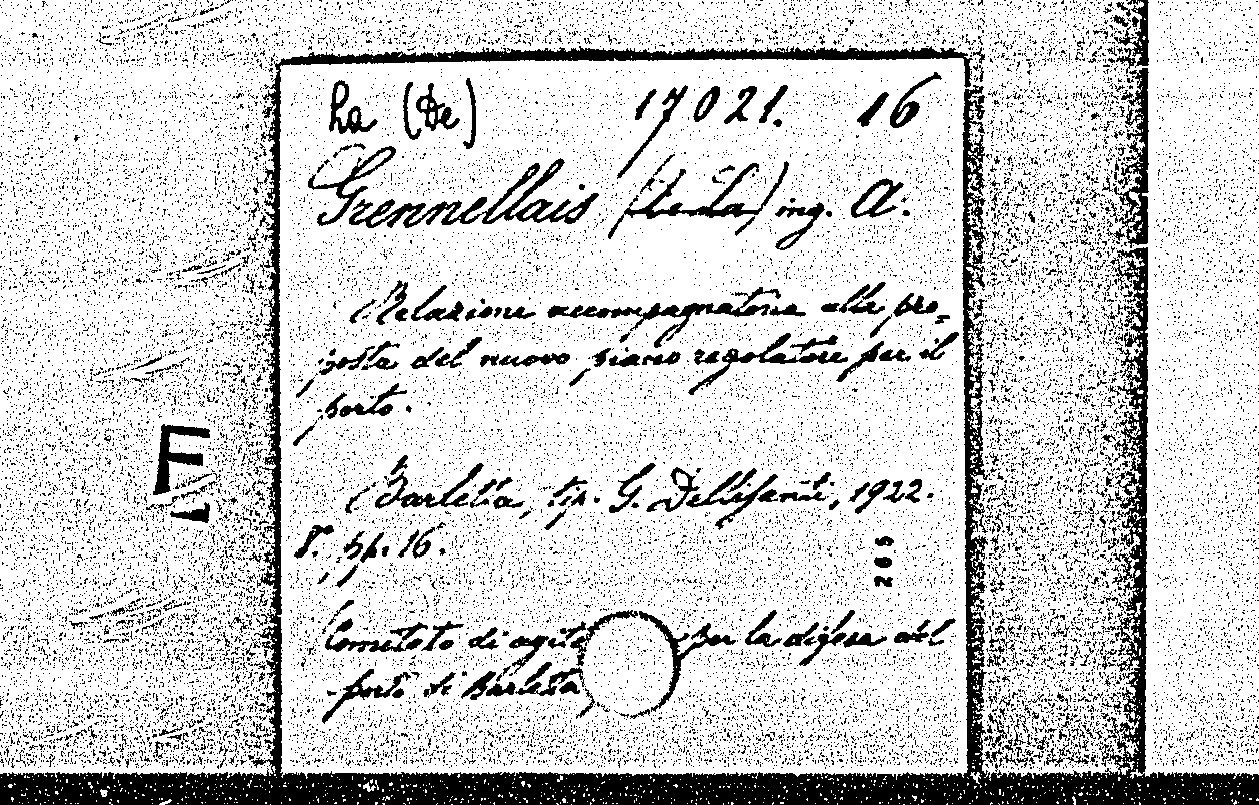 La (De) 17021. 16
Grennellais (De La) ing. A.
Relazione accompagnatoria alla pro=
posta del nuovo piano regolatore per il
porto.
Barletta, tip. G. Dellisanti, 1922.
8°, pp. 16.
205
Comitato di agita per la difesa del
porto di Barletta
E